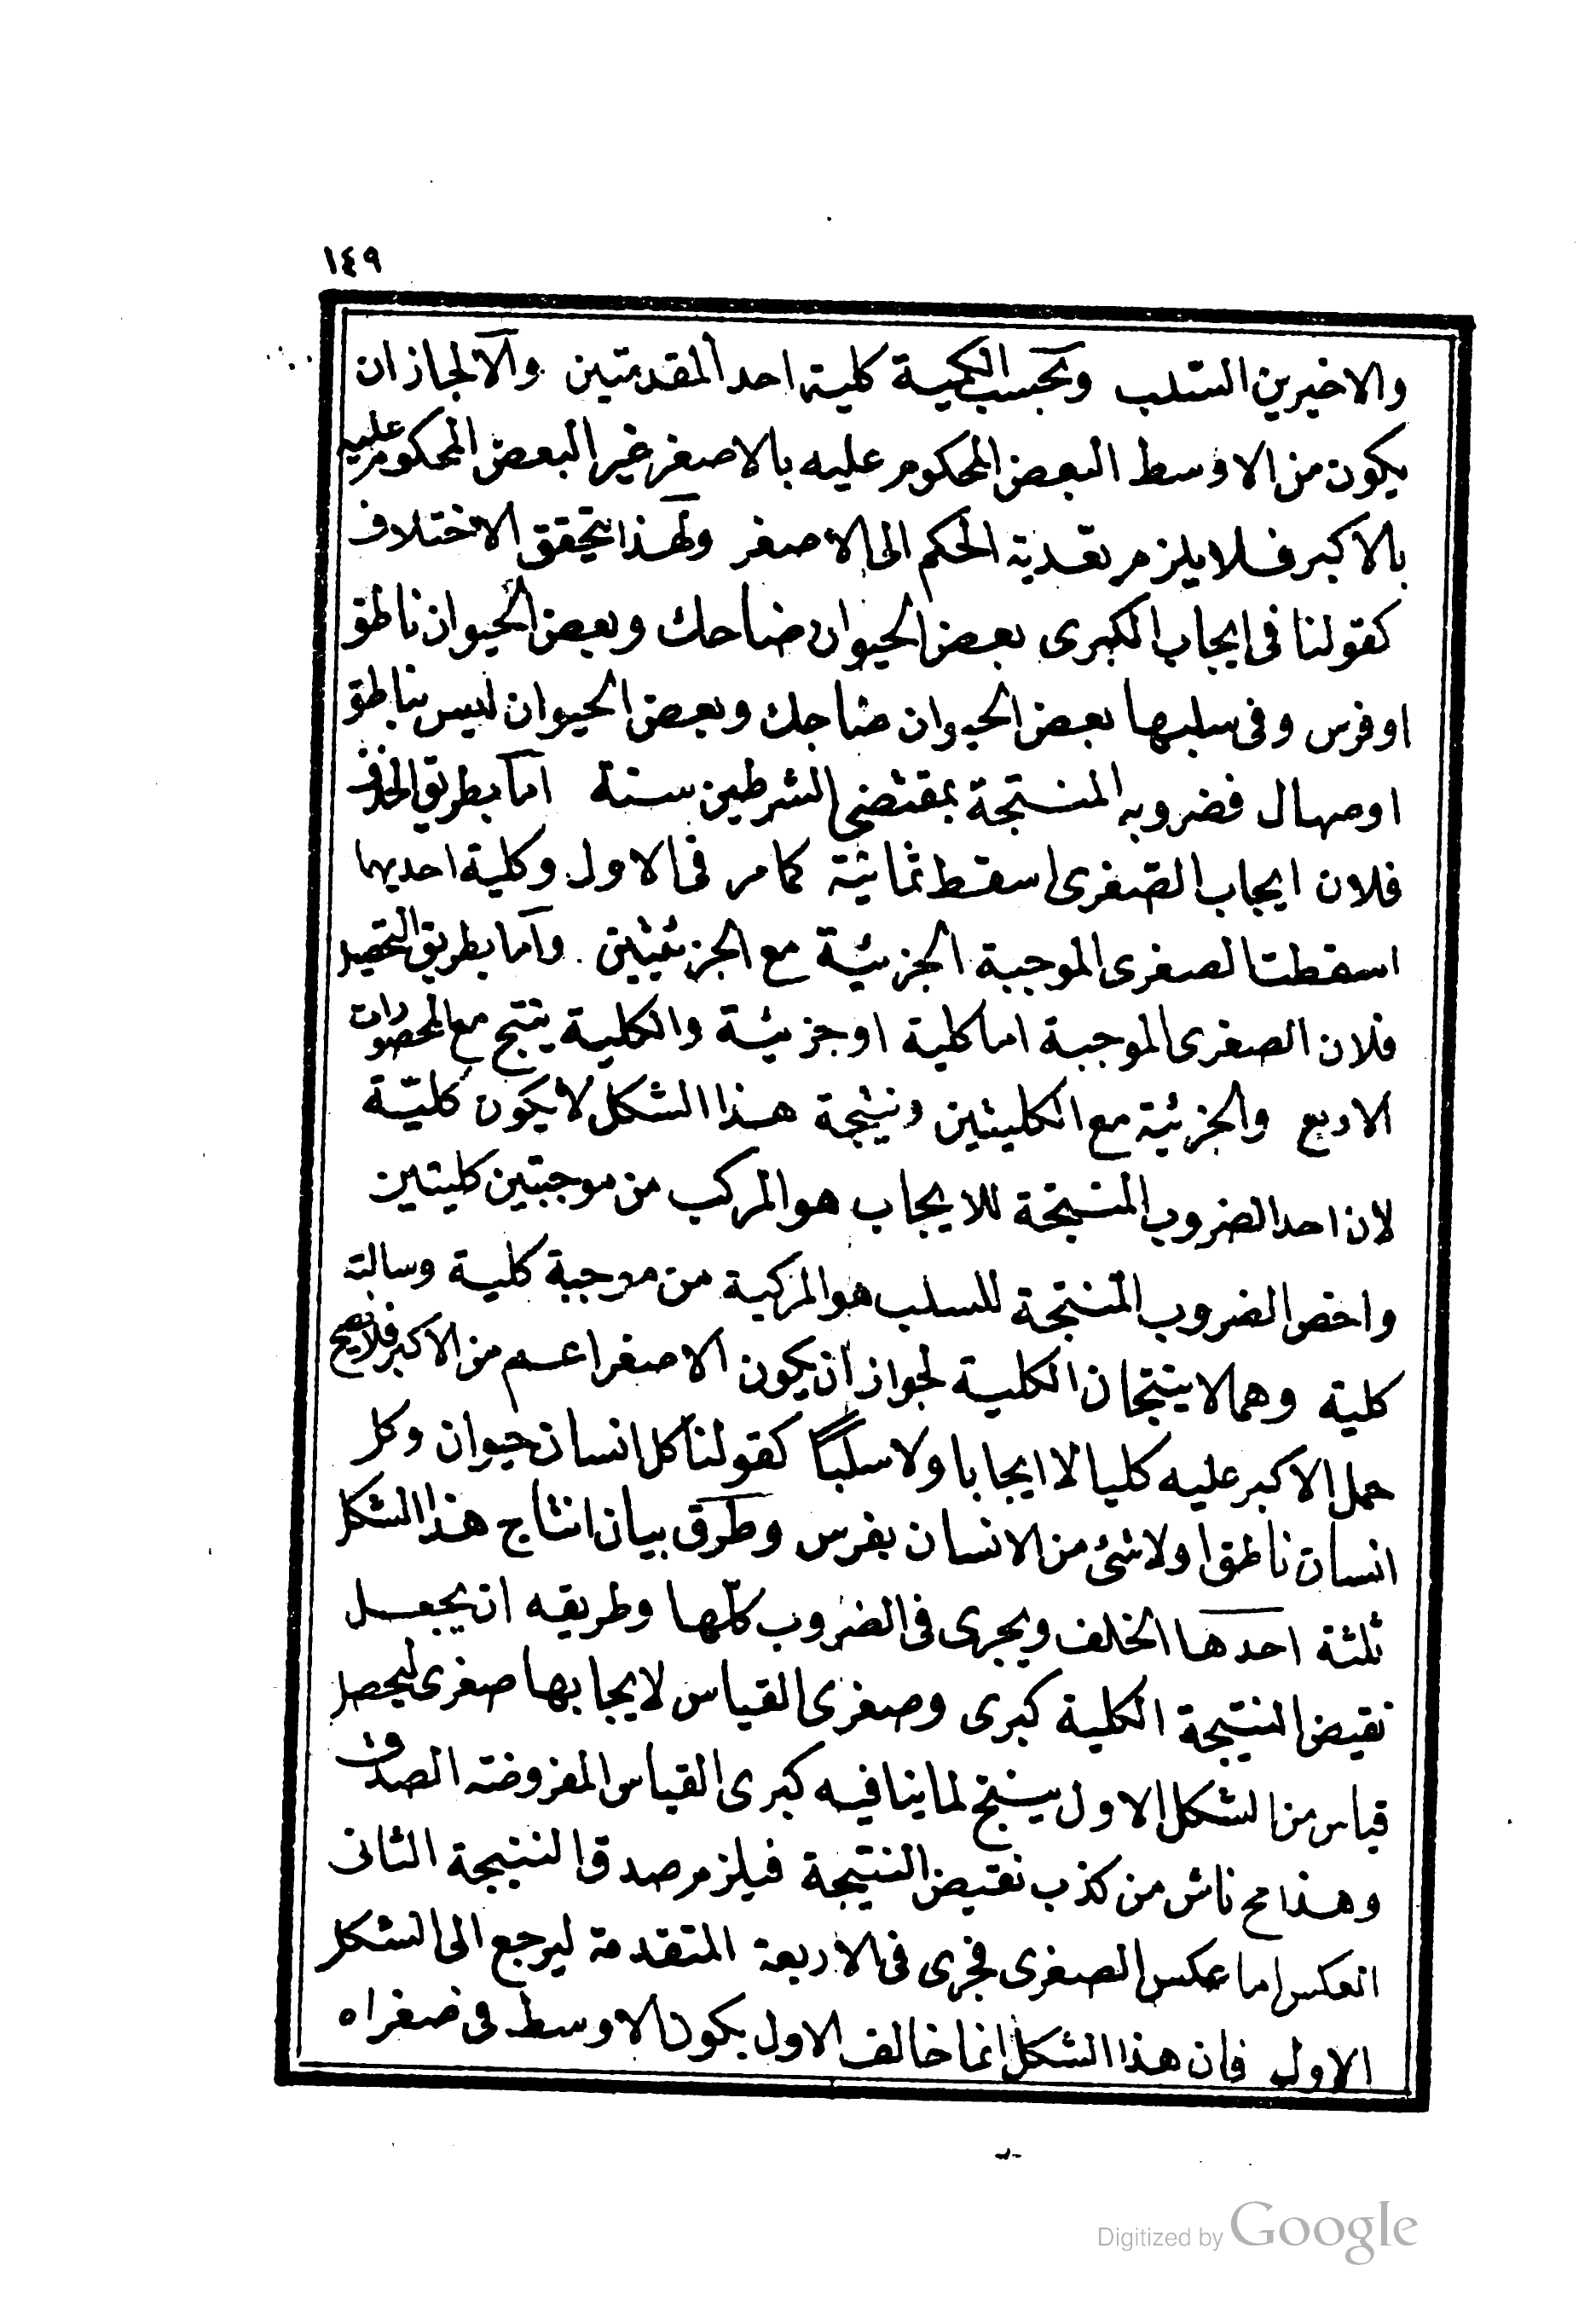 ١٤٩
والاخيرين السلب وبحسب الكمية كلية احد المقدمتين والا لجاز ان
يكون من الاوسط البعض المحكوم عليه بالاصغر غير البعض المحكوم عليه
بالاكبر فلا يلزم تعدية الحكم الى الاصغر ولهذا يتحقق الاختلاف
كقولنا فى ايجاب الكبرى بعض الحيوان ضاحك وبعض الحيوان ناطق
اوفرس وفى سلبها بعض الحيوان ضاحك وبعض الحيوان ليس بناطق
اوصهال فضروبه المنتجة بمقتضى الشرطين ستة اما بطريق الحذف
فلان ايجاب الصغرى اسقط ثمانية كما مر فى الاول وكلية احديهما
اسقطت الصغرى الموجبة الجزئية مع الجزئيتين واما بطريق التحصيل
فلان الصغرى الموجبة اما كلية او جزئية والكلية ينتج مع المحصورات
الاربع والجزئية مع الكليتين ونتيجة هذا الشكل لا يكون كليّة
لان احد الضروب المنتجة للايجاب هو المركب من موجبتين كليتين
واخص الضروب المنتجة للسلب هو المركبة من موجبة كلية وسالبة
كلية وهما لا ينتجان الكلية لجواز ان يكون الاصغر اعم من الاكبر فلا يصح
حمل الاكبر عليه كليا لا ايجابا ولا سلبًا كقولنا كل انسان حيوان وكل
انسان ناطق اولاشئ من الانسان بفرس وطرق بيان انتاج هذا الشكل
ثلثة احدها الخلف ويجرى فى الضروب كلّها وطريقه ان يجعل
نقيض النتيجة الكلية كبرى وصغرى القياس لايجابها صغرى ليحصل
قياس من الشكل الاول ينتج لما ينافيه كبرى القياس المفروضة الصدق
وهذا مح ناش من كذب نقيض النتيجة فيلزم صدق النتيجة الثانى
العكس اما عكس الصغرى فجرى فى الاربعة المتقدمة ليرجع الى الشكل
الاول فان هذا الشكل انما خالف الاول بكون الاوسط فى صغراه
Digitized by Google